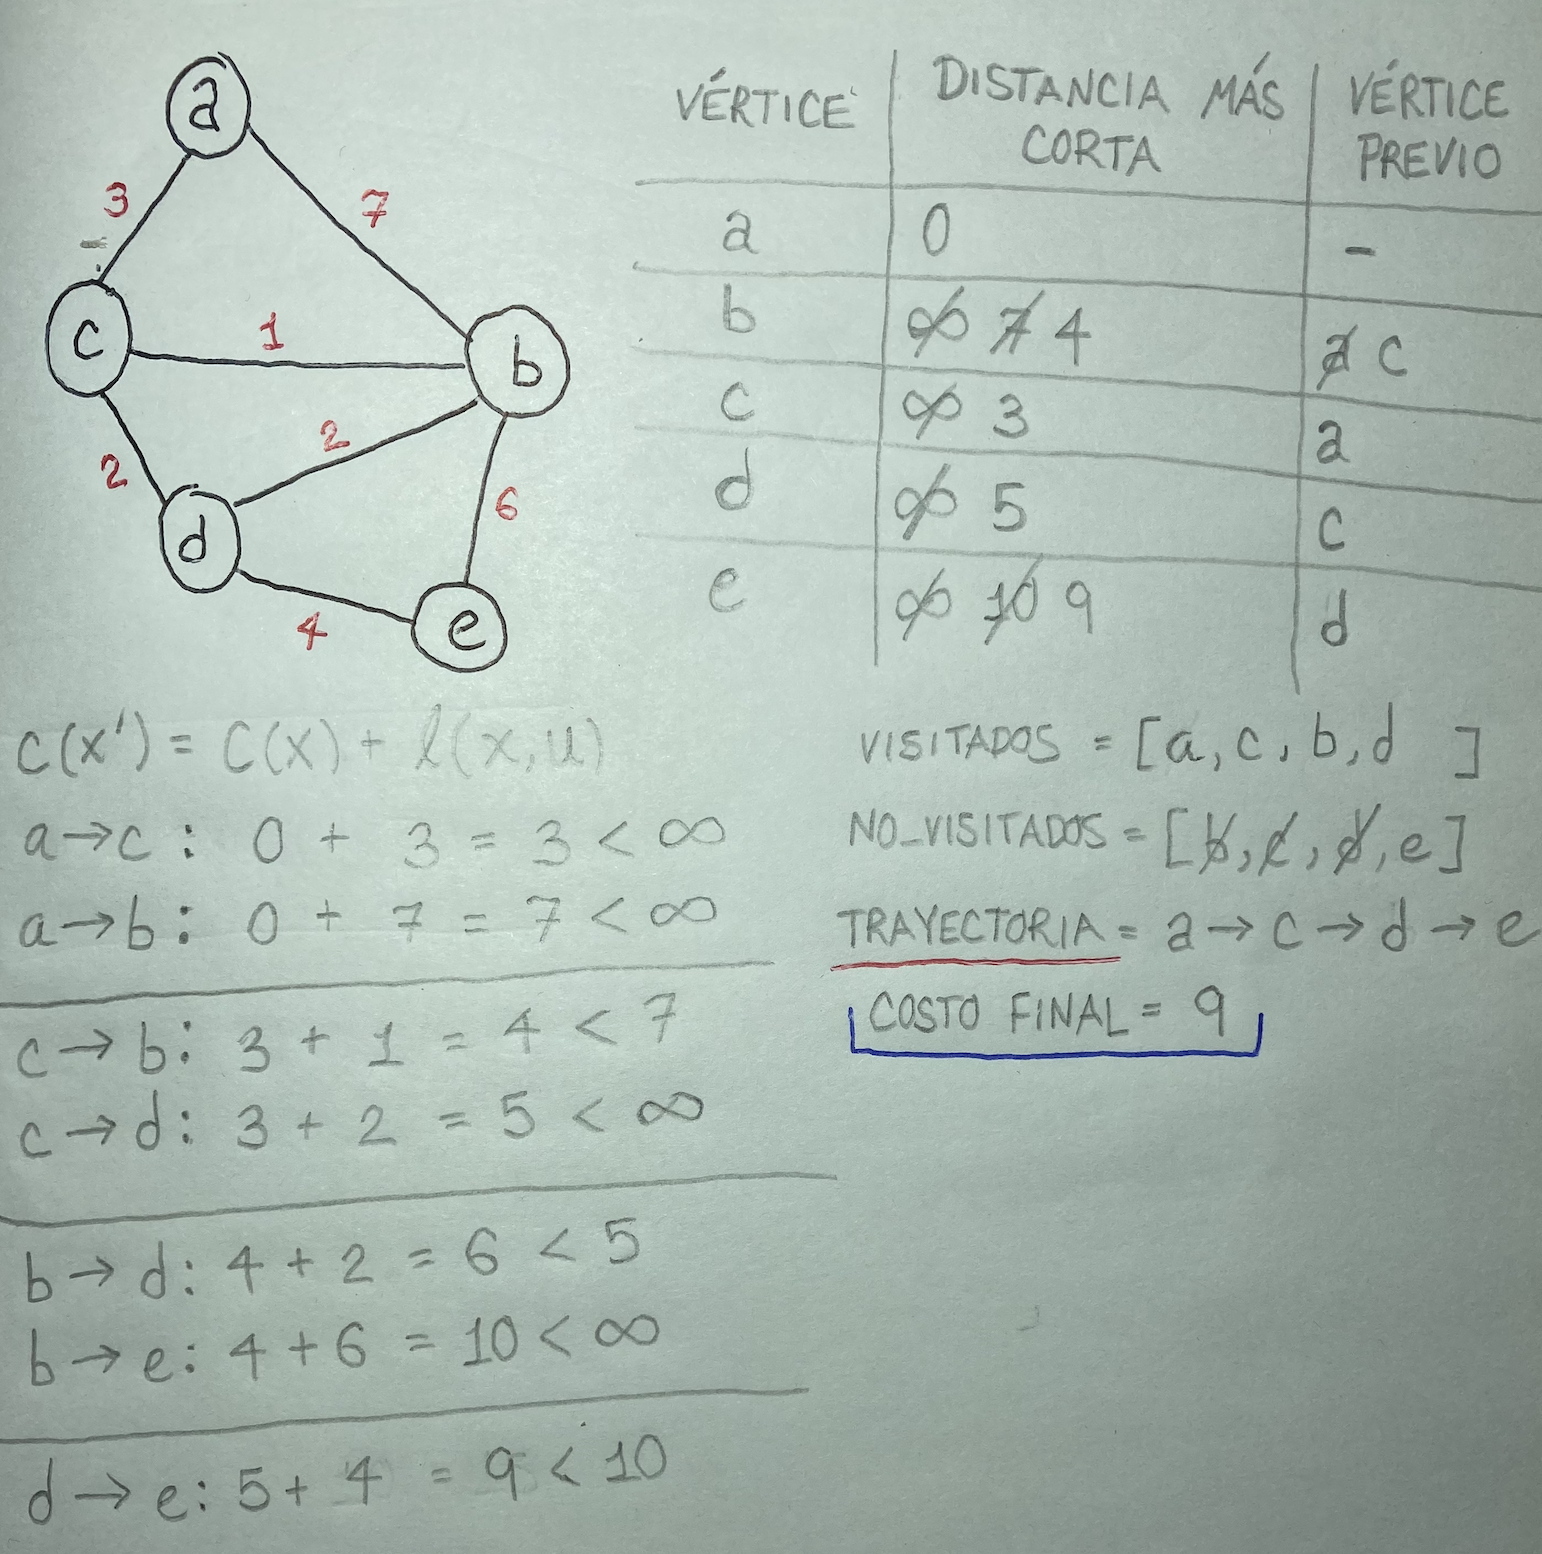 a
3
7
c
1
b
2
2
6
d
4
e
VÉRTICE DISTANCIA MÁS CORTA VÉRTICE PREVIO
a 0 -
b ∞ 7 4 a c
c ∞ 3 a
d ∞ 5 c
e ∞ 10 9 d
C(x') = C(x) + l(x,u)
a→c : 0 + 3 = 3 < ∞
a→b : 0 + 7 = 7 < ∞
c→b : 3 + 1 = 4 < 7
c→d : 3 + 2 = 5 < ∞
b→d : 4 + 2 = 6 < 5
b→e : 4 + 6 = 10 < ∞
d→e : 5 + 4 = 9 < 10
VISITADOS = [a, c, b, d ]
NO_VISITADOS = [b, c, d, e]
TRAYECTORIA = a→c→d→e
COSTO FINAL = 9